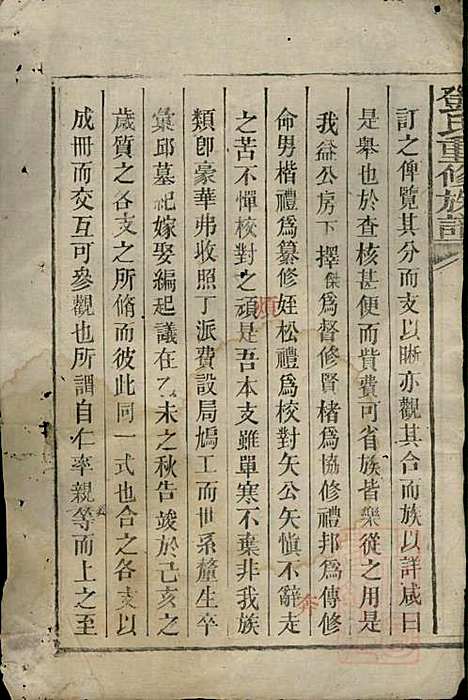 鄧氏重修族譜
訂之俾覽其分而支以晰亦觀其合而族以詳咸曰
是舉也於查核甚便而貲費可省族皆樂從之用是
我益公房下擇傑為督修賢楮為協修禮邦為傳修
命男楷禮為纂修姪松禮為校對矢公矢慎不辭走
之苦不憚校對之頑是吾本支雖單寒不棄非我族
煩
奔
類卽豪華弗收照丁派費設局鳩工而世系釐生卒
彙邱墓祀嫁娶編起議在乙未之秋告竣於己亥之
歲質之各支之所脩而彼此同一式也合之各支以
成冊而交互可參觀也所謂自仁率親等而上之至